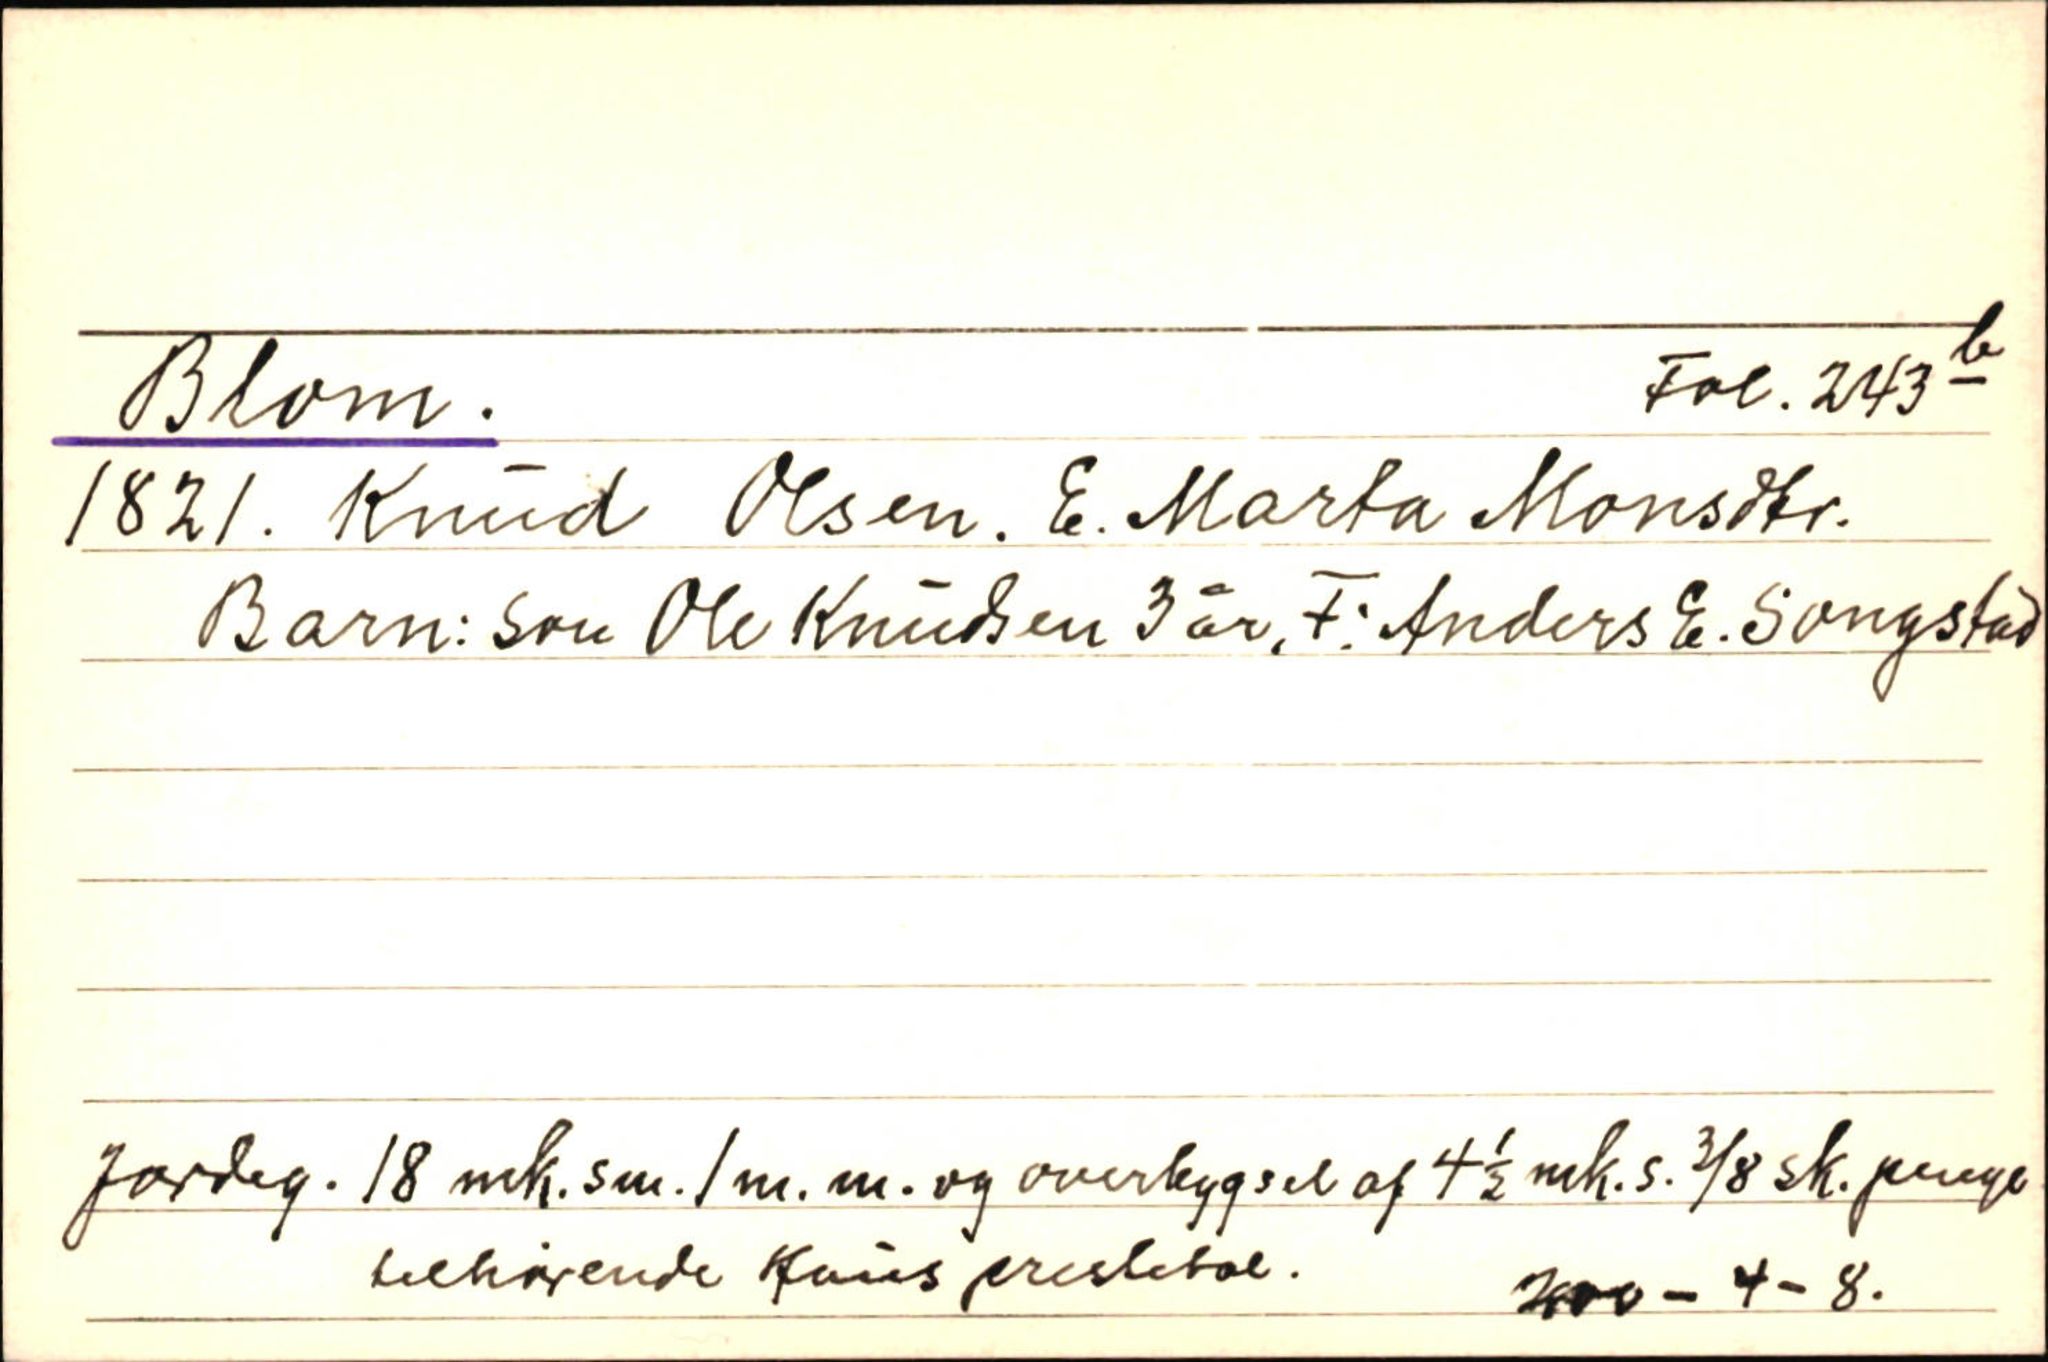 Blom. Fol. 243 b
1821. Knud Olsen. E. Marta Monsdtr.
Barn: Son Ole Knudsen 3 år, F: Anders E. Songstad
Jordeg. 18 mk. sm. 1 m. m. og overbygsel af 4½ mk. s. 3/8 sk. penge
tilhørende prestebol. - 4 - 8.